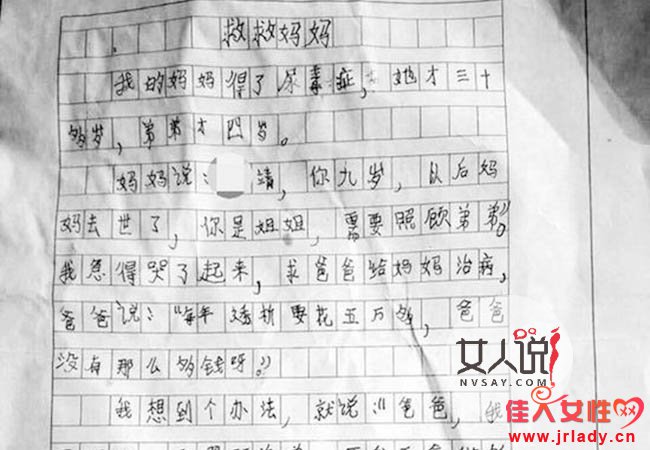 救救妈妈
我的妈妈得了尿毒症，她才三十
多岁，弟弟才四岁。
妈妈说：靖，你九岁，以后妈
妈去世了，你是姐姐，需要照顾弟弟。”
我急得哭了起来，求爸爸给妈妈治病，
爸爸说：“每年透析要花五万多，爸爸
没有那么多钱呀。”
我想到个办法，就说：“爸爸，我
女人说
NVSAY.COM
佳人女性网
www.jrlady.cn